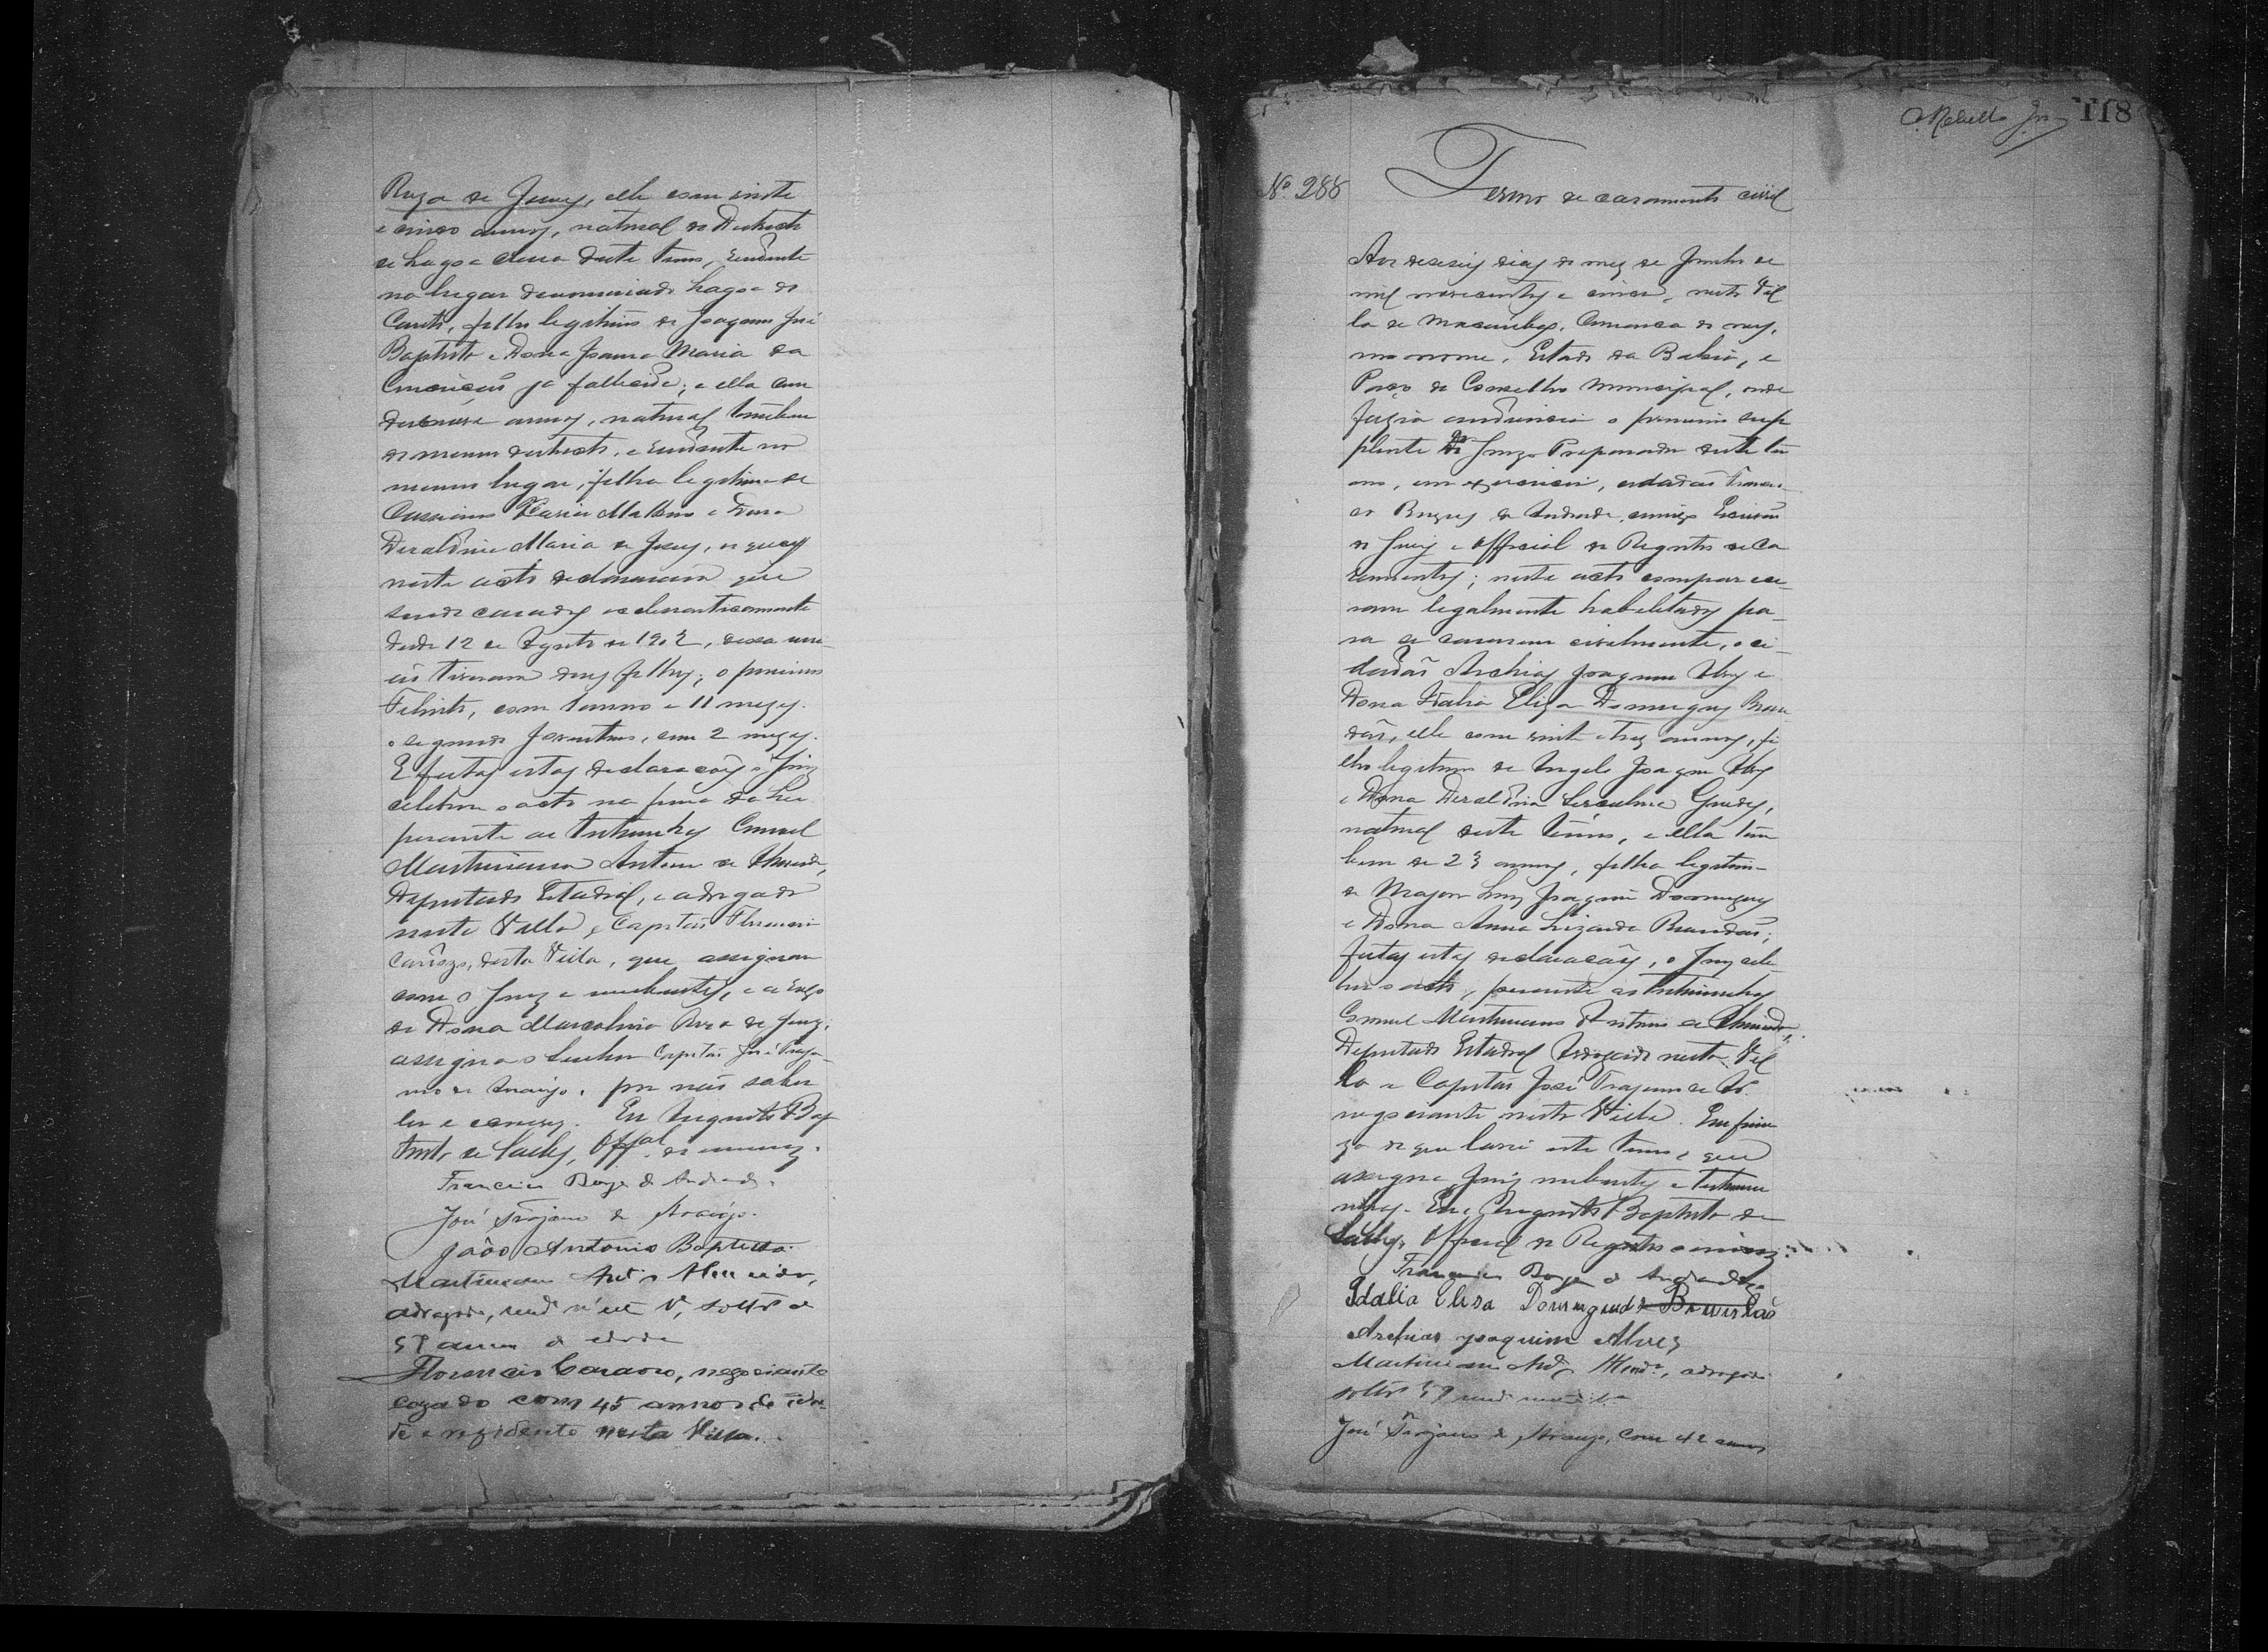 Roza de Jesus, elle com vinte
e cinco annos, natural do Districto
de Lagoa Clara deste termo, residente
no lugar denominado Lagoa do
filho legitimo de Joaquim José
Baptista e Dona Joanna Maria da
Conceição já fallecida; e ella com
dezenove annos, natural tambem
do mesmo districto, e residente no
mesmo lugar, filha legitima de
Xavier e Dona
Geraldina Maria de Jesus, os quaes
neste acto declararam que
sendo casados ecclesiasticamente
desde 12 de Agosto de 1902, dessa uni-
ão tiveram dous filhos; o primeiro
Filinto, com 1 anno e 11 mezes.
o segundo com 2 mezes.
E feitas estas declarações o Juiz
celebrou o acto na forma da Lei
perante as testemunhas Coronel
Martiniano Antonio de Almeida,
Deputado Estadoal, e advogado
nesta Villa, e Capitão Florencio
Cardozo, desta Villa, que assignam
com o Juiz e nubentes, e a rogo
de Dona Marcolina Roza de Jesus,
assigna o Senhor Capitão José Traja-
no de Araujo, por não saber
ler e escrever. Eu Augusto Bap
tista de Offal. escrevy.
Francisco Borges de Andrade.
José Trajano de Araújo.
João Antonio Baptista.
Martiniano Anto. Almeida,
advogado, solto. de
59 annos de edade
Florencio Cardozo, negociante
cazado com 45 annos de ida-
de e rezidente nesta Villa.
O. Rebello Jor
118
Nº 288
Termo de casamento civil
Aos deseseis dias do mez de Junho de
mil novecentos e cinco, nesta Vil
la de Macaúbas, Comarca do mes-
mo nome, Estado da Bahia, e
Paço do Conselho Municipal, onde
fazia audiencia o primeiro sup
plente do Juizo Preparador deste ter
mo, em exercicio, cidadão Francis
co Borges de Andrade, comigo Escrivão
de Paz e Official do Registro de Ca
samentos; neste acto comparece
ram legalmente habilitados pa-
ra se casarem civilmente, o ci-
dadão Archias Joaquim Alves e
Dona Idalia Eliza Domingues Bran
dão, elle com vinte e trez annos, fi
lho legitimo de Angelo Joaquim Alves
e Dona Geraldina Guedes,
natural deste termo, e ella tam
bem de 23 annos, filha legitima
do Major Luiz Joaquim Domingues
e Dona Anna Brandão;
feitas estas declarações, o Juiz cele
brou o acto, perante as testemunhas
Coronel Martiniano Antonio de Almeida,
Deputado Estadoal Advogado nesta Vil
la e Capitão José Trajano de Ar.
negociante nesta Villa. Em firme
za do que lavrei este termo, que
assigna o Juiz nubentes e testemu
nhas. Eu, Augusto Baptista de
Official do Registro escrevy.
Francisco Borges de Andrade
Idalia Elisa Domingues Brandão
Archias Joaquim Alves
Martiniano Anto. Almda., advogado
solto. 59
José Trajano de Araujo, com 42 annos